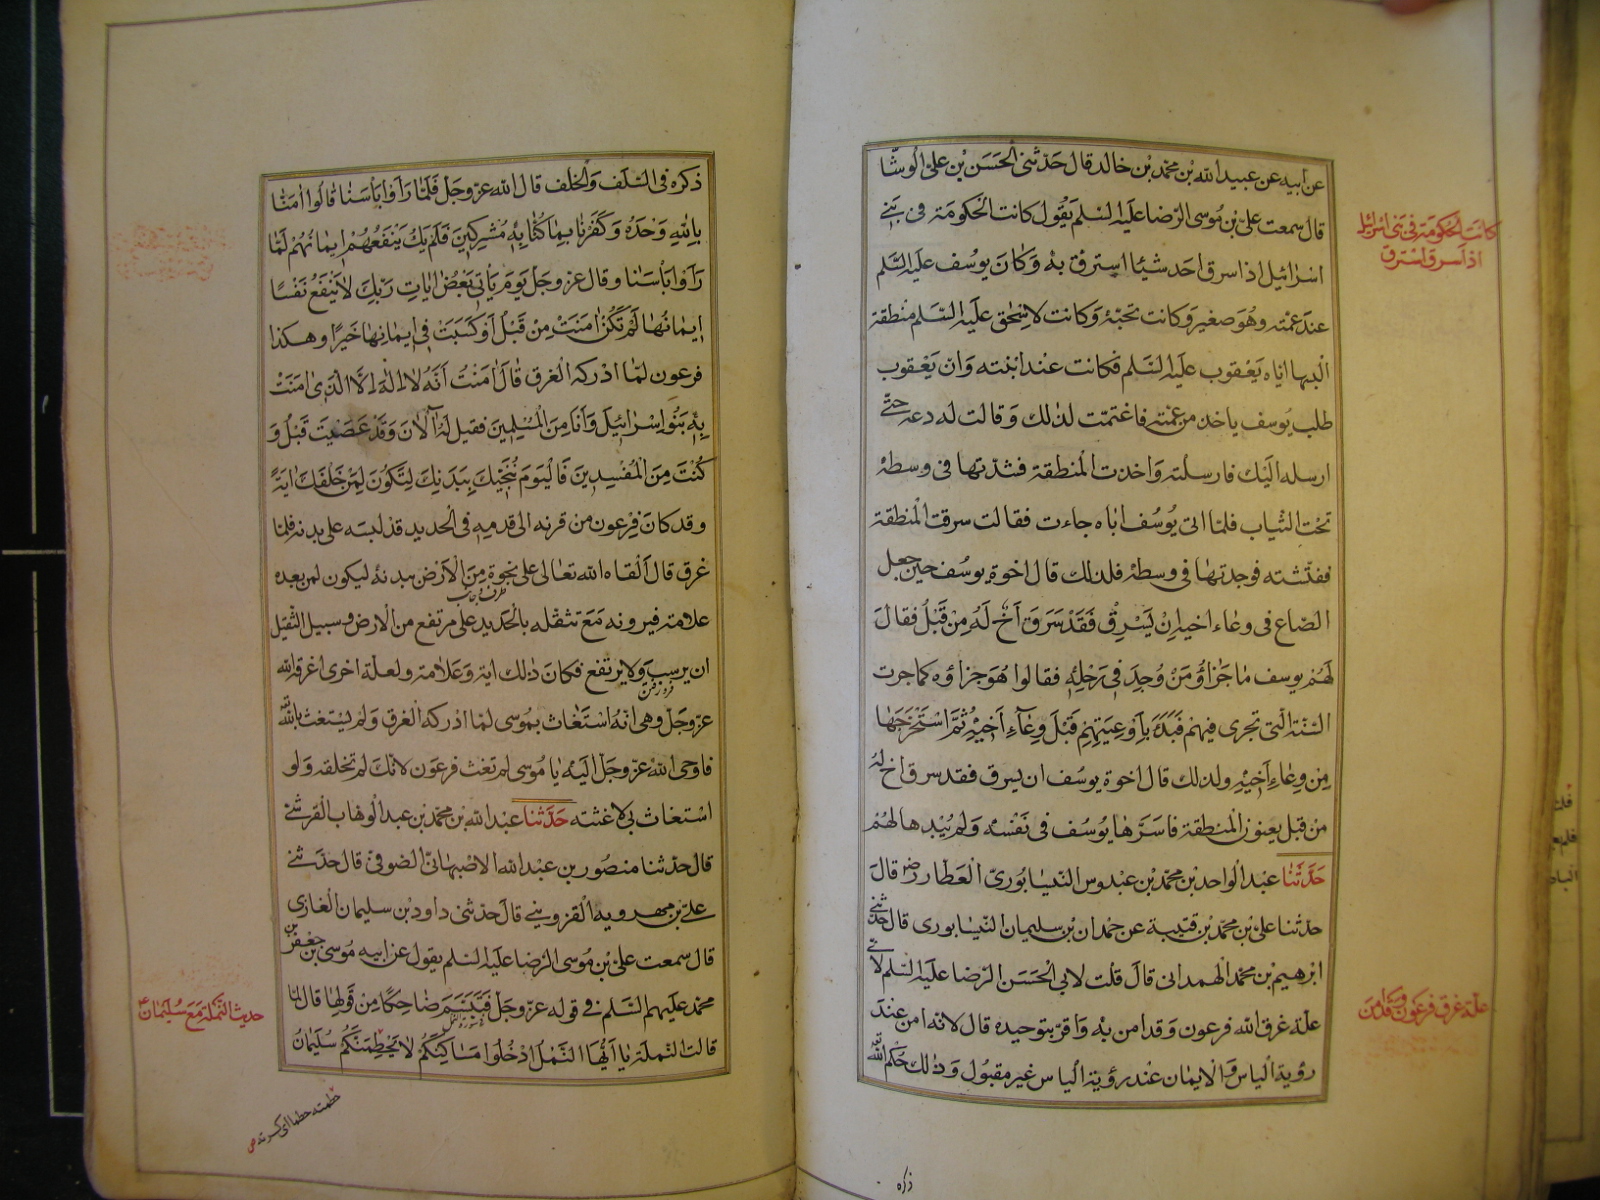 عن ابيه عن عبيد الله بن محمد بن خالد قال حدثنى الحسن بن على الوشا
قال سمعت على بن موسى الرضا عليه السلم يقول كانت الحكومة فى بنى
اسرائيل اذا سرق احد شيئا استرق به وكان يوسف عليه السلم
عند عمته وهو صغير وكانت تحبه وكانت لاسحق عليه السلم منطقة
البسها اياه يعقوب عليه السلم فكانت عند ابنته وان يعقوب
طلب يوسف ياخذ من عمته فاغتمت لذلك وقالت له دعه حتى
ارسله اليك فارسلته واخذت المنطقة فشدتها فى وسطه
تحت الثياب فلما اتى يوسف اباه جاءت فقالت سرقت المنطقة
ففتشته فوجدتها فى وسطه فلذلك قال اخوة يوسف حين جعل
الصاع فى وعاء اخيه ان يسرق فقد سرق اخ له من قبل فقال
لهم يوسف ما جزاؤ من وجد فى رحله فقالوا هو جزاؤه كما جرت
السنة التى تجرى فيهم فبدء باوعيتهم قبل وعاء اخيه ثم استخرجها
من وعاء اخيه ولذلك قال اخوة يوسف ان يسرق فقد سرق اخ له
من قبل يعنون المنطقة فاسرها يوسف فى نفسه ولم يبدها لهم
حدثنا عبد الواحد بن محمد بن عبدوس النيسابورى العطار رض قال
حدثنا على بن محمد بن قتيبة عن حمدان بن سليمان النيسابورى قال حدثنى
ابرهيم بن محمد الهمدانى قال قلت لابى الحسن الرضا عليه السلم لاى
علة غرق الله فرعون وقد امن به واقر بتوحيده قال لانه امن عند
رؤية الباس والايمان عند رؤية الباس غير مقبول وذلك حكم الله
كانت الحكومة فى بنى اسرائيل
اذا سرق استرق
علة غرق فرعون وقد امن
ذكره
ذكره فى السلف والخلف قال الله عز وجل فلما راوا باسنا قالوا امنا
بالله وحده وكفرنا بما كنا به مشركين فلم يك ينفعهم ايمانهم لما
راوا باسنا وقال عز وجل يوم ياتى بعض ايات ربك لا ينفع نفسا
ايمانها لم تكن امنت من قبل او كسبت فى ايمانها خيرا وهكذا
فرعون لما ادركه الغرق قال امنت انه لا اله الا الذى امنت
به بنو اسرائيل وانا من المسلمين فقيل له آلان وقد عصيت قبل و
كنت من المفسدين فاليوم ننجيك ببدنك لتكون لمن خلفك اية
وقد كان فرعون من قرنه الى قدمه فى الحديد قد لبسه على بدنه فلما
غرق قال القاه الله تعالى على نجوة من الارض ببدنه ليكون لمن بعده
علامة فيرونه مع تثقله بالحديد على مرتفع من الارض وسبيل الثقيل
ان يرسب ولا يرتفع فكان ذلك اية وعلامة ولعلة اخرى اغرقه الله
عز وجل وهى انه استغاث بموسى لما ادركه الغرق ولم يستغث بالله
فاوحى الله عز وجل اليه يا موسى لم تغث فرعون لانك لم تخلقه ولو
استغاث بى لاغثته حدثنا عبد الله بن محمد بن عبد الوهاب القرشى
قال حدثنا منصور بن عبد الله الاصبهانى الصوفى قال حدثنى
على بن مهرويه القزوينى قال حدثنى داود بن سليمان الغازى
قال سمعت على بن موسى الرضا عليه السلم يقول عن ابيه موسى بن جعفر بن
محمد عليهم السلم فى قوله عز وجل فتبسم ضاحكا من قولها قال لما
قالت النملة يا ايها النمل ادخلوا مساكنكم لا يحطمنكم سليمان
حديث النملة مع سليمان ع